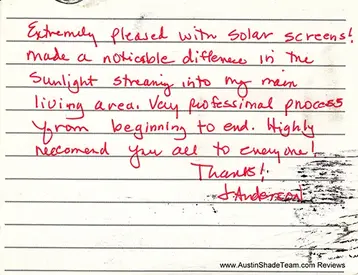 Extremely pleased with solar screens!
made a noticable difference in the
sunlight streaming into my main
living area. Very professional process
from beginning to end. Highly
recomend you all to everyone!
Thanks!
J Anderson
www.AustinShadeTeam.com Reviews